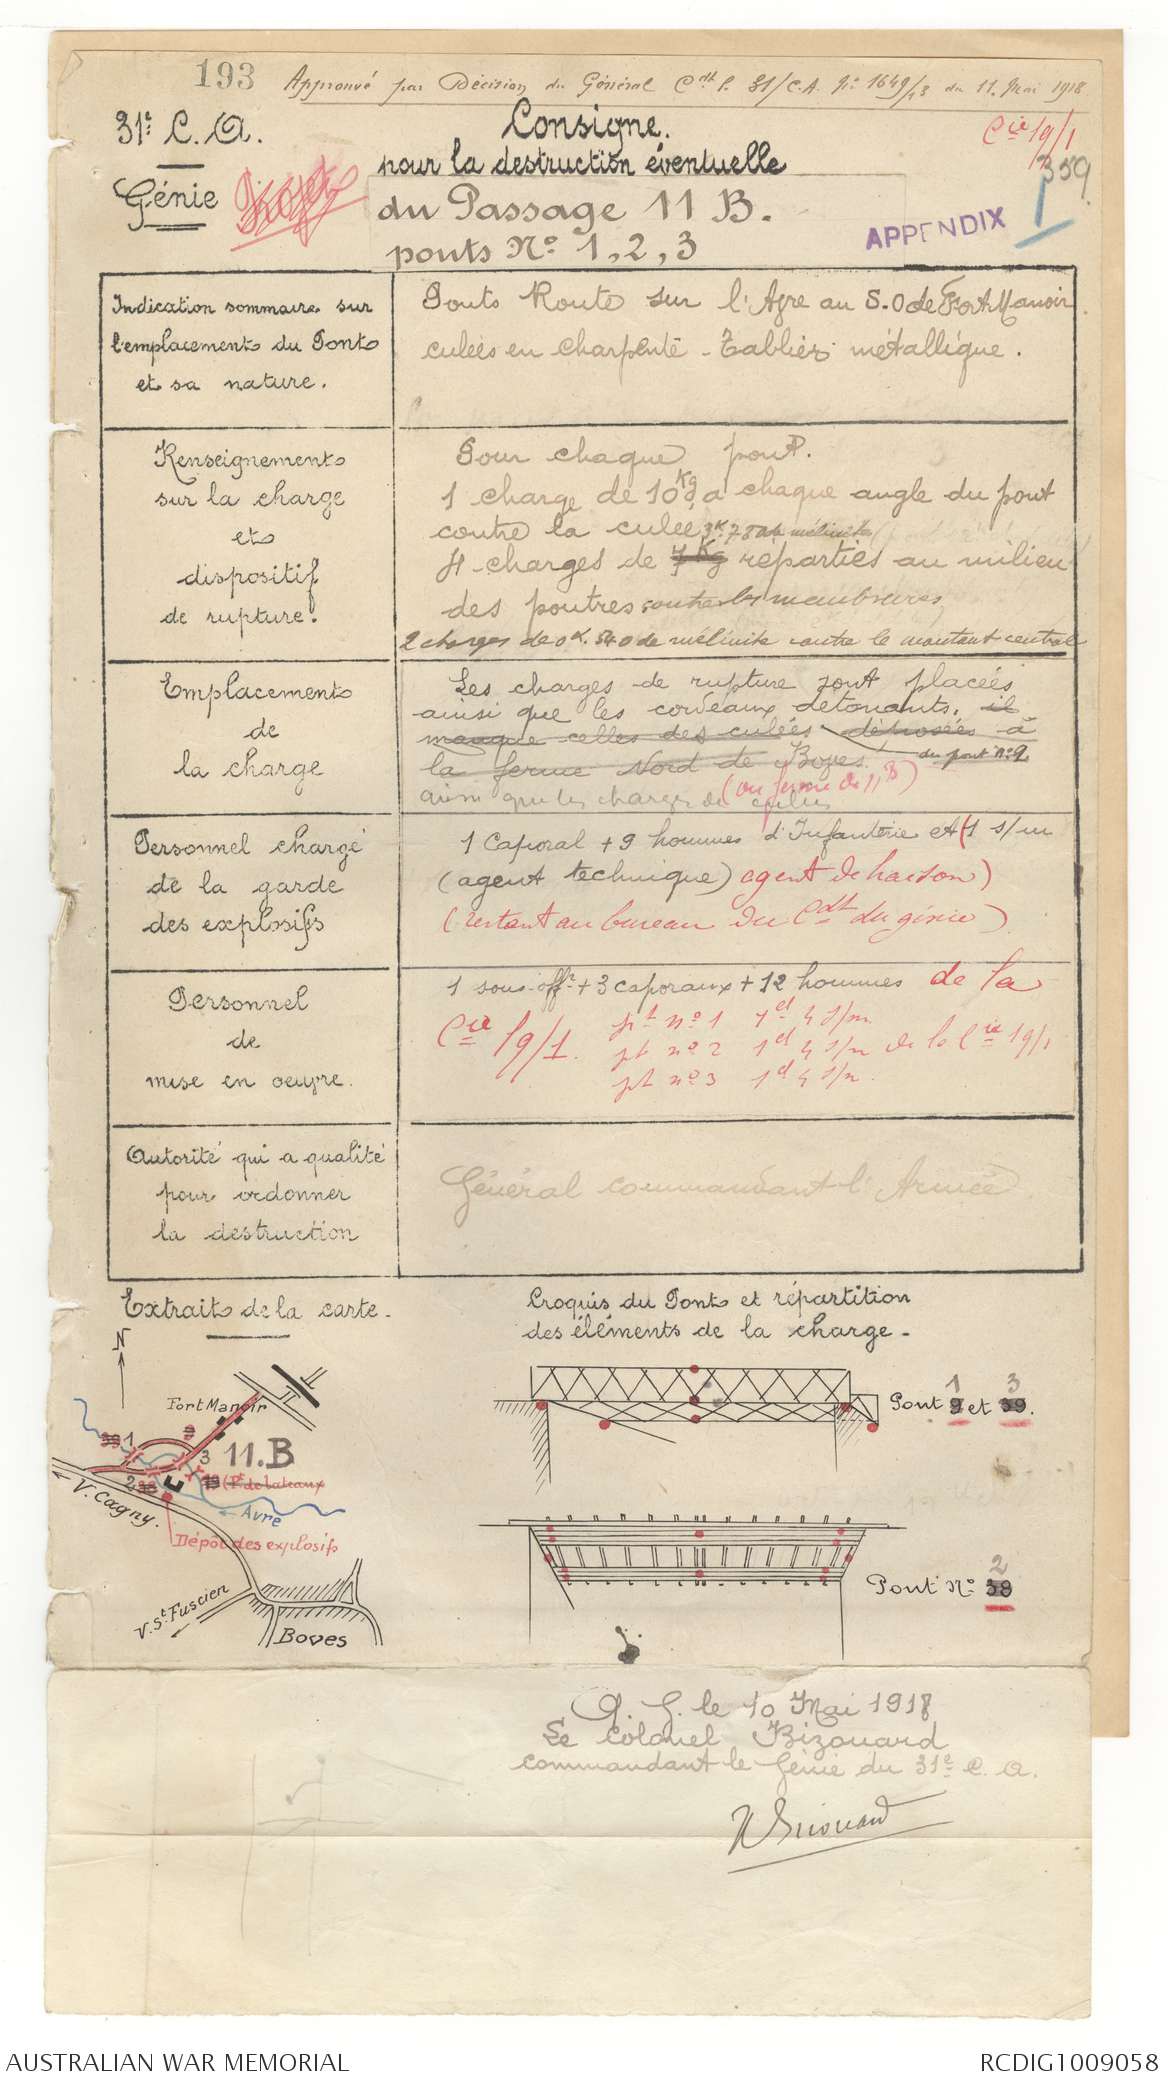 193 Approuvé par Décision du Général Cdt l. 31/C.A. No 1649/13 du 11. Mai 1918
31e C. A.
Génie
Projet
Consigne.
pour la destruction éventuelle
du Passage 11 B.
ponts No 1, 2, 3
Cie 19/1
359
APPENDIX
Indication sommaire sur
l'emplacement du Pont
et sa nature.
Ponts Route sur l'Avre au S.O de Fort Manoir
culées en charpente - Tablier métallique.
Renseignements
sur la charge
et
dispositif
de rupture.
Pour chaque pont.
1 charge de 10Kg a chaque angle du pont
contre la culée
3K.780 de mélinite
4 charges de 7 Kg réparties au milieu
des poutres contre les membrures
2 charges de 0K.540 de mélinite contre le montant central
Emplacement
de
la charge
Les charges de rupture sont placées
ainsi que les cordeaux détonants. il
manque celles des culées déposées à
la ferme Nord de Boves du pont no 9
ainsi que les charges de culées
(ou ferme de 11 B)
Personnel chargé
de la garde
des explosifs
1 Caporal + 9 hommes d'Infanterie et (1 s/m
(agent technique) agent de liaison)
(restant au bureau du Cdt du génie)
Personnel
de
mise en oeuvre.
1 sous-offr + 3 caporaux + 12 hommes de la
Cie 19/1.
pt no 1 1 cl 4 s/m
pt no 2 1 cl 4 s/m de la Cie 19/1
pt no 3 1 cl 4 s/m.
Autorité qui a qualité
pour ordonner
la destruction
Général commandant l'Armée
Extrait de la carte.
Croquis du Pont et répartition
des éléments de la charge.
N
Fort Manoir
39 1
9
3
11.B
2 38
19 (Pt de bateaux
V. Cagny.
Avre
Dépôt des explosifs
V. St Fuscien
Boves
1 3
Pont 9 et 39.
2
Pont No 38
Q. G. le 10 Mai 1918
Le Colonel Bizouard
commandant le Génie du 31e C. A.
Bizouard
AUSTRALIAN WAR MEMORIAL
RCDIG1009058